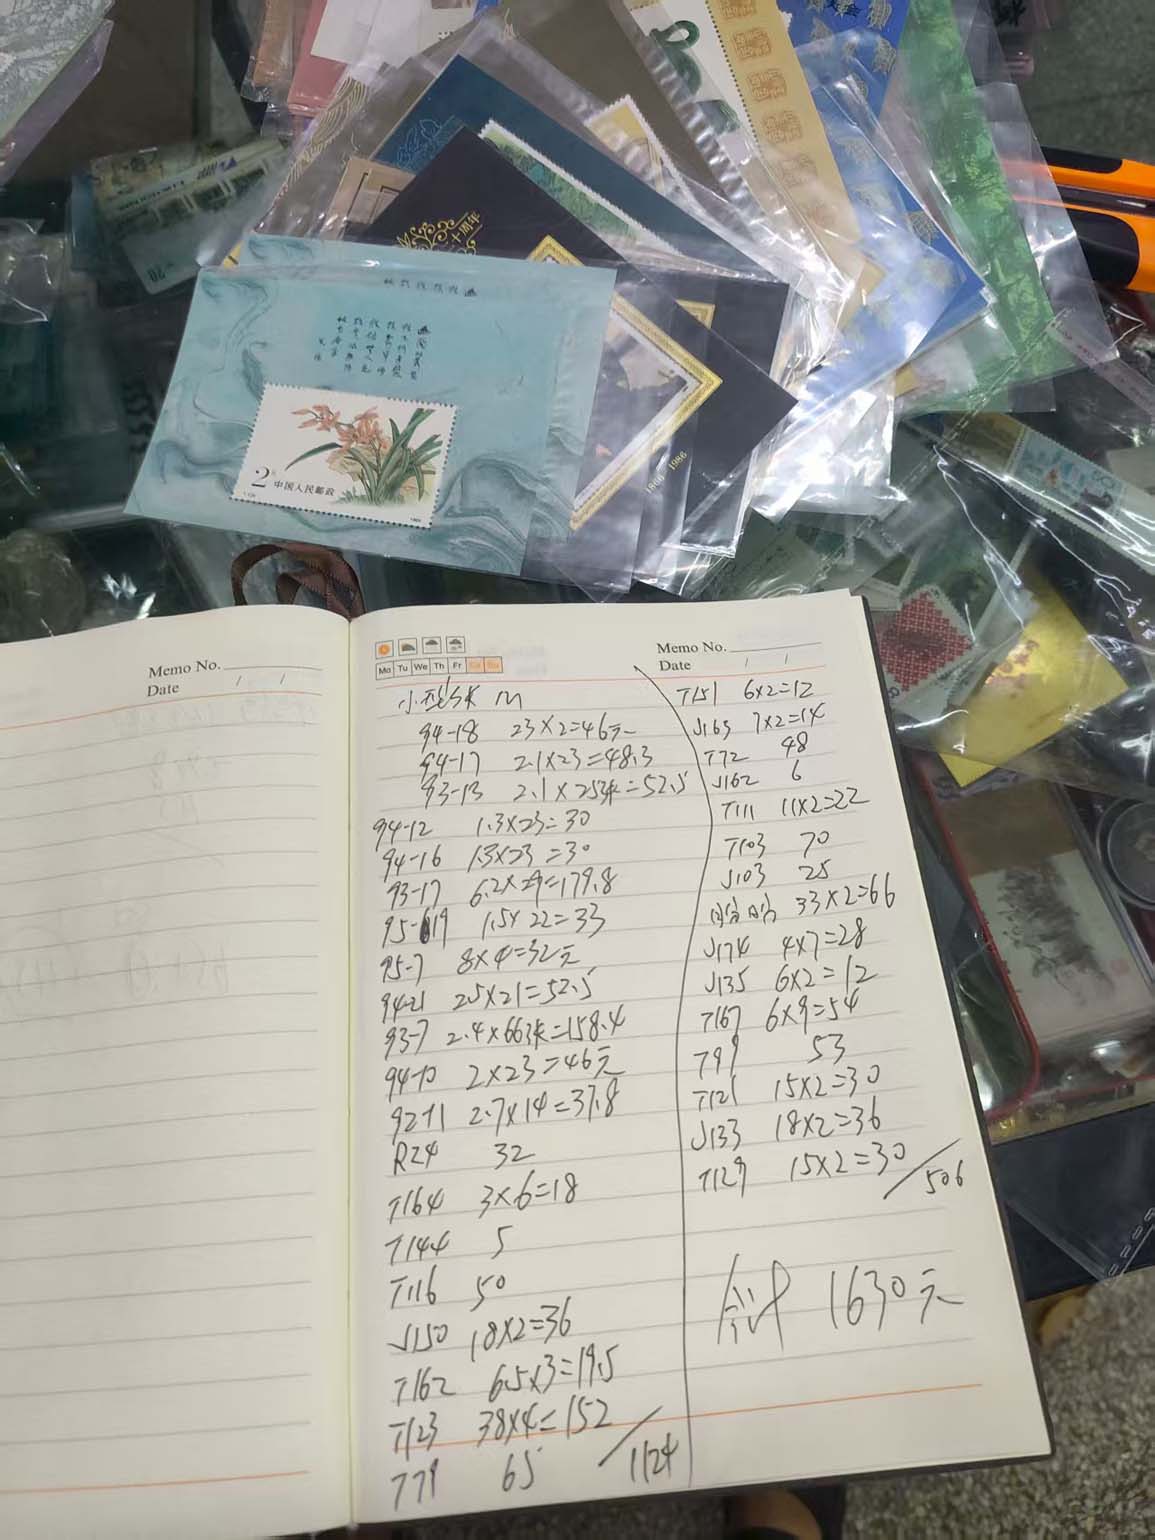 十周年
1866 1986
2元 中国人民邮政
Memo No.
Date / /
Mo Tu We Th Fr Sa Su
Memo No.
Date / /
小型张 M
94-18 23×2=46元
94-17 2.1×23=48.3
93-13 2.1×25张=52.5
94-12 1.3×23=30
94-16 1.3×23=30
93-17 6.2×29=179.8
95-19 1.5×22=33
95-7 8×4=32元
94-21 2.5×21=52.5
93-7 2.4×66张=158.4
94-10 2×23=46元
92-11 2.7×14=37.8
R24 32
T164 3×6=18
T144 5
T116 50
J150 18×2=36
T162 6.5×3=19.5
T123 38×4=152
T79 65 /1124
T151 6×2=12
J163 7×2=14
T72 48
J162 6
T111 11×2=22
T103 70
J103 25
33×2=66
J174 4×7=28
J135 6×2=12
T167 6×9=54
T99 53
T121 15×2=30
J133 18×2=36
T129 15×2=30 /506
总计 1630元